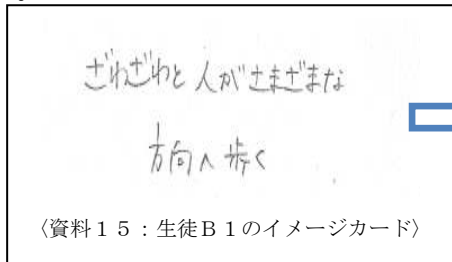 ざわざわと人がさまざまな
方向へ歩く
〈資料１５：生徒Ｂ１のイメージカード〉